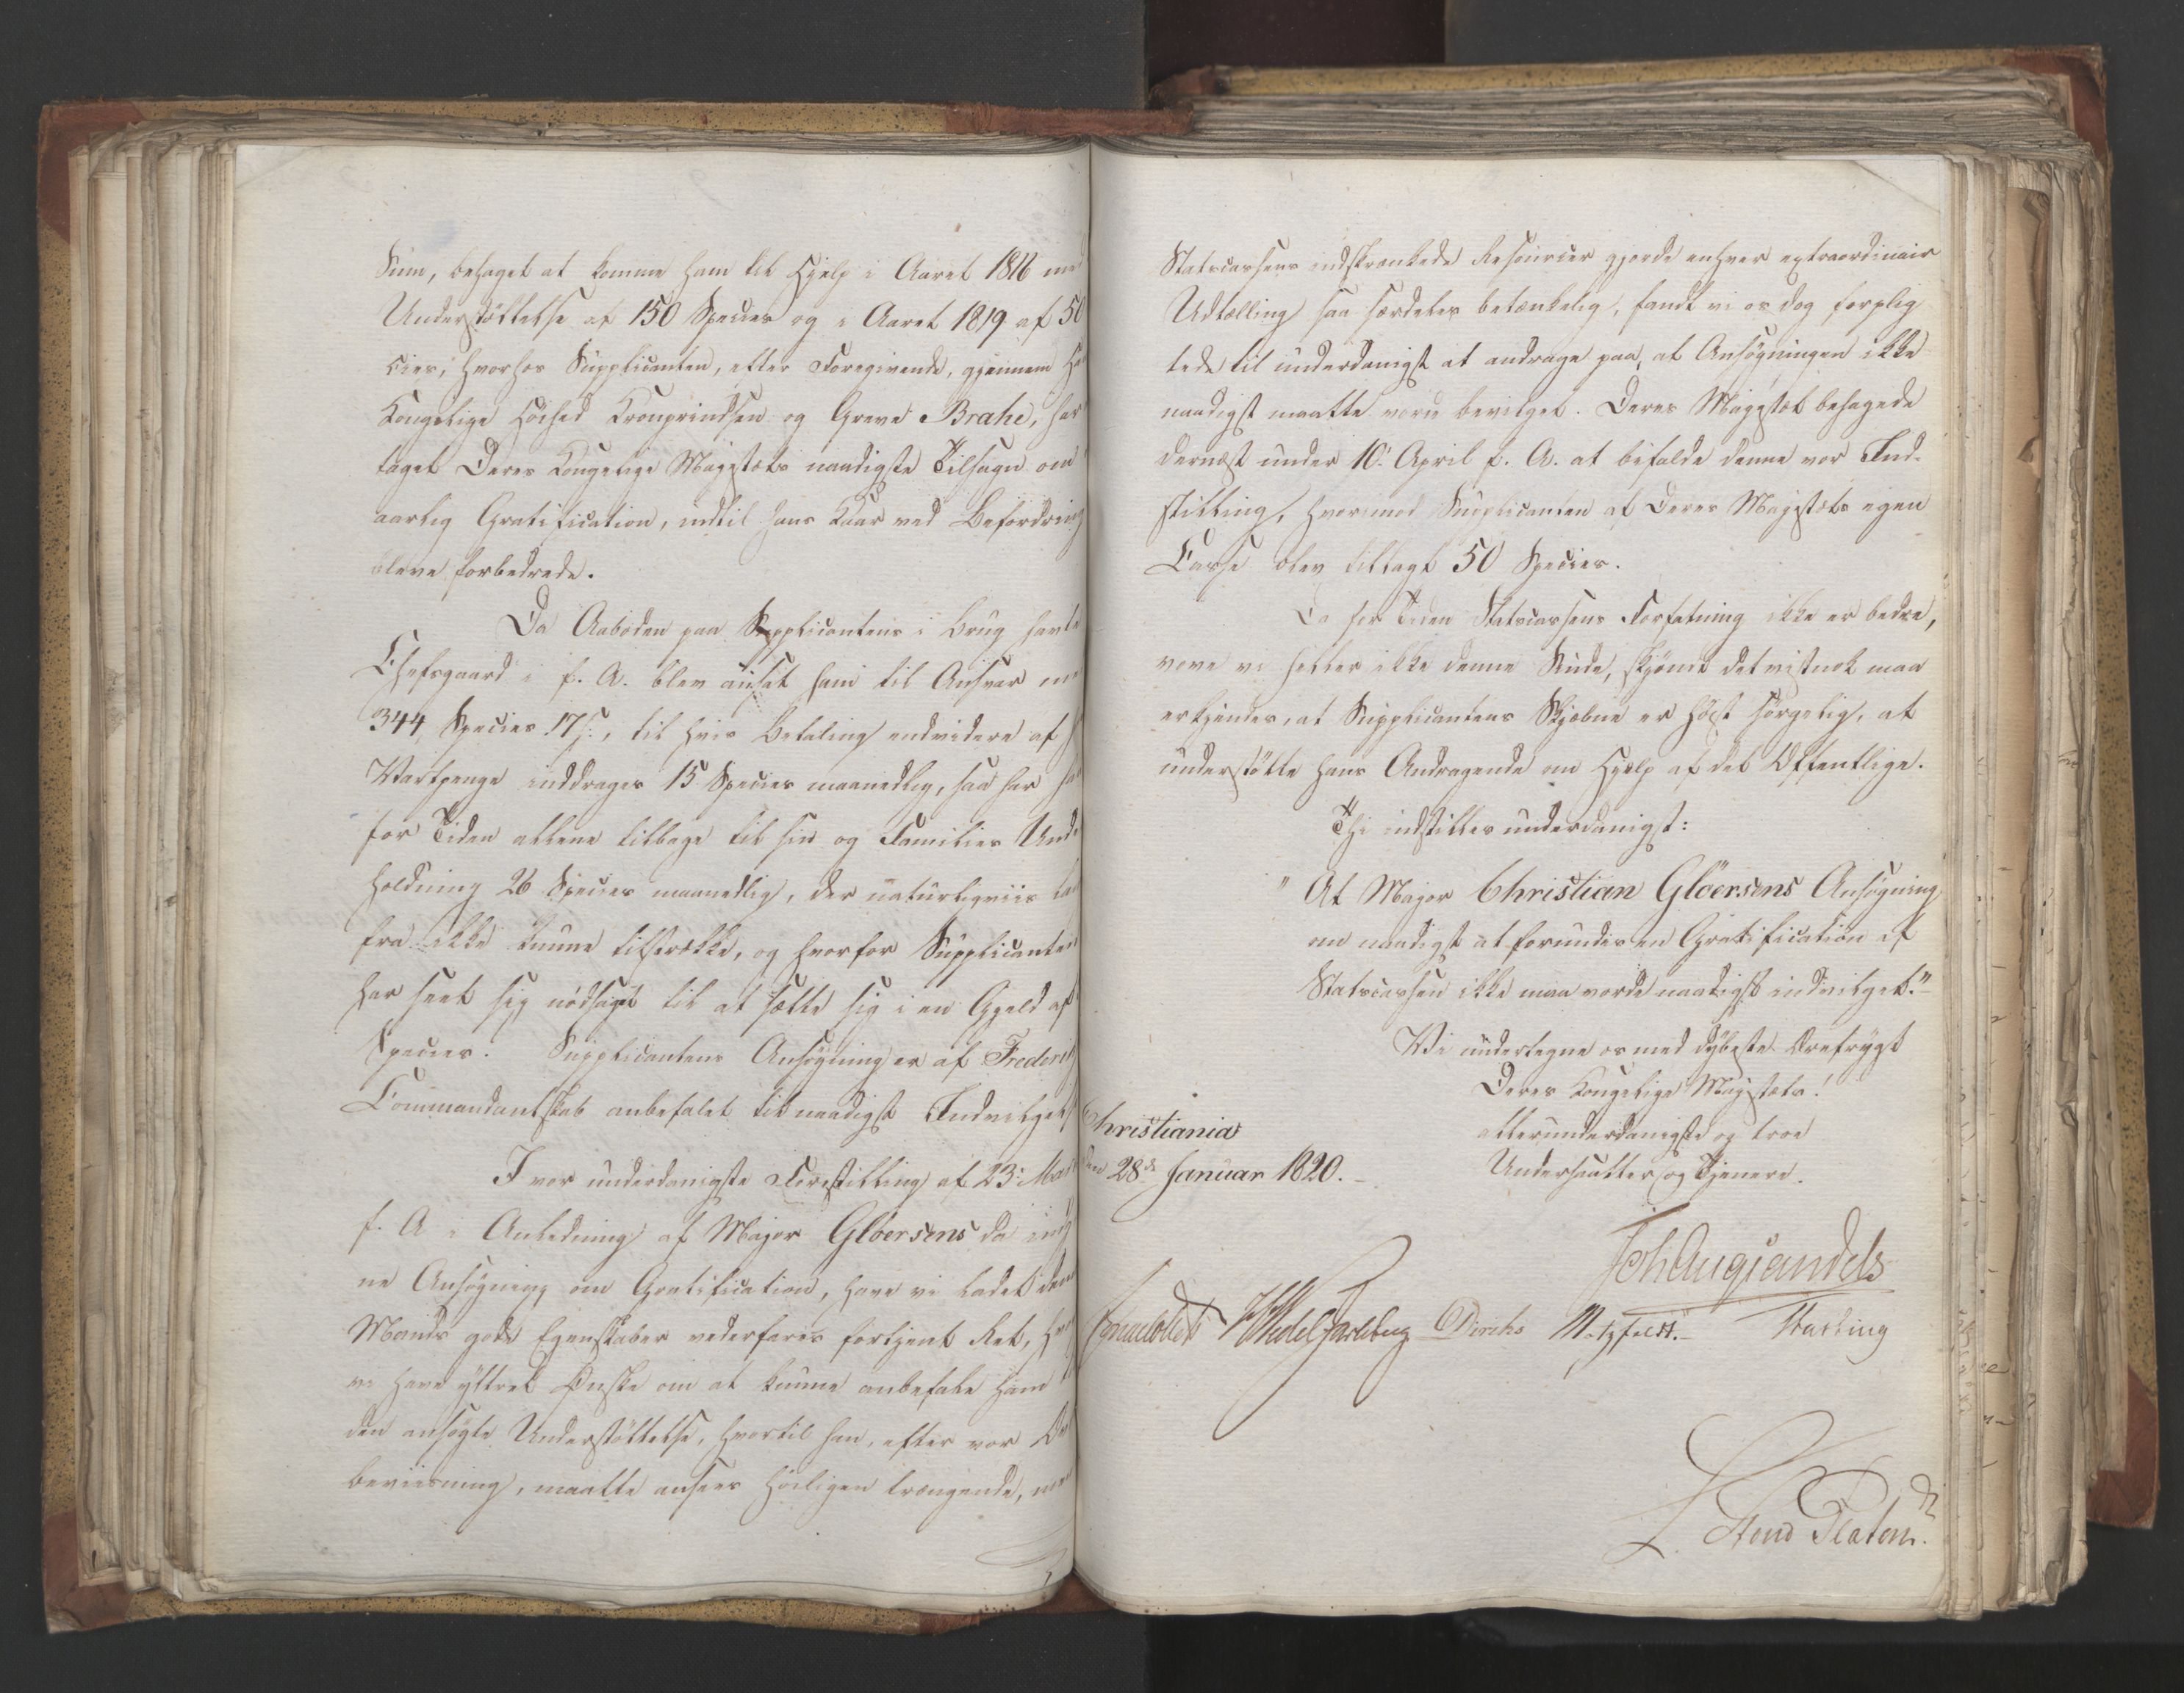 Sum, behaget at komme ham til Hjelp i Aaret 1816 med
Understøttelse af 150 Species og i Aaret 1819 af 50
cies; hvorhos Supplicanten, efter Foregivende, gjennem
Kongelige Höihed Kronprindsen og Greve Brahe, har
taget Deres Kongelige Majestæts naadigste Tilsagn om
aarlig Gratification, indtil hans Kaar ved Befordring
bleve forbedrede.
Da Aaboden paa Supplicantens i Brug havte
Chefsgaard i f. A. blev ansat ham til Ansvar
344 Species 17 s., til hvis Betaling endvidere af
Vartpenge inddrages 15 Species maanedlig, saa har
for Tiden allene tilbage til sin og Families Und
holdning 26 Species maanedlig, der naturligviis
fra ikke kunne tilstrække, og hvorfor Supplicanten
har seet sig nødsaget til at sætte sig i en Gjeld af
Species. Supplicantens Ansøgning er af Frederi
Commandantskab anbefalet til naadigst Indvilgel
I vor underdanigste Forestilling af 23: Mar
f. A. i Anledning af Major Glöersens da ind
ne Ansøgning om Gratification, have vi ladet den
Mands gode Egenskaber vederfares fortjent Ret,
vi have yttret Ønske om at kunne anbefale ham
den ansøgte Understøttelse, hvortil han, efter vor
beviisning, maatte ansees höiligen trængende,
Statscassens indskrænkede Resourcer gjorde enhver extraordinair
Udtælling saa særdeles betænkelig, fandt vi os dog forplig
tede til underdanigst at andrage paa, at Ansøgningen ikke
naadigst maatte vorde bevilget. Deres Majestæt behagede
dernæst under 10: April f. A. at bifalde denne vor Ind-
stilling, hvorimod Supplicanten af Deres Majestæts egen
Casse blev tillagt 50 Species.
Da for Tiden Statscassens Forfatning ikke er bedre,
vove vi heller ikke denne Sinde, skjönt det vistnok maa
erkjendes, at Supplicantens Skjæbne er höist sörgelig, at
understötte hans Andragende om Hjelp af det Offentlige.
Thi indstilles underdanigst:
"At Major Christian Glöersens Ansøgning
om naadigst at forundes en Gratification af
Statscassen ikke maa vorde naadigst indvilget."
Vi undertegne os med dybeste Ærefrygt
Deres Kongelige Majestæts!
allerunderdanigste og troe
Undersaatter og Tjenere.
Christiania
den 28de Januar 1820.
Joh Aug Sandels
Sommerhielm HWedel Jarlsberg Diriks Motzfeldt. Fasting